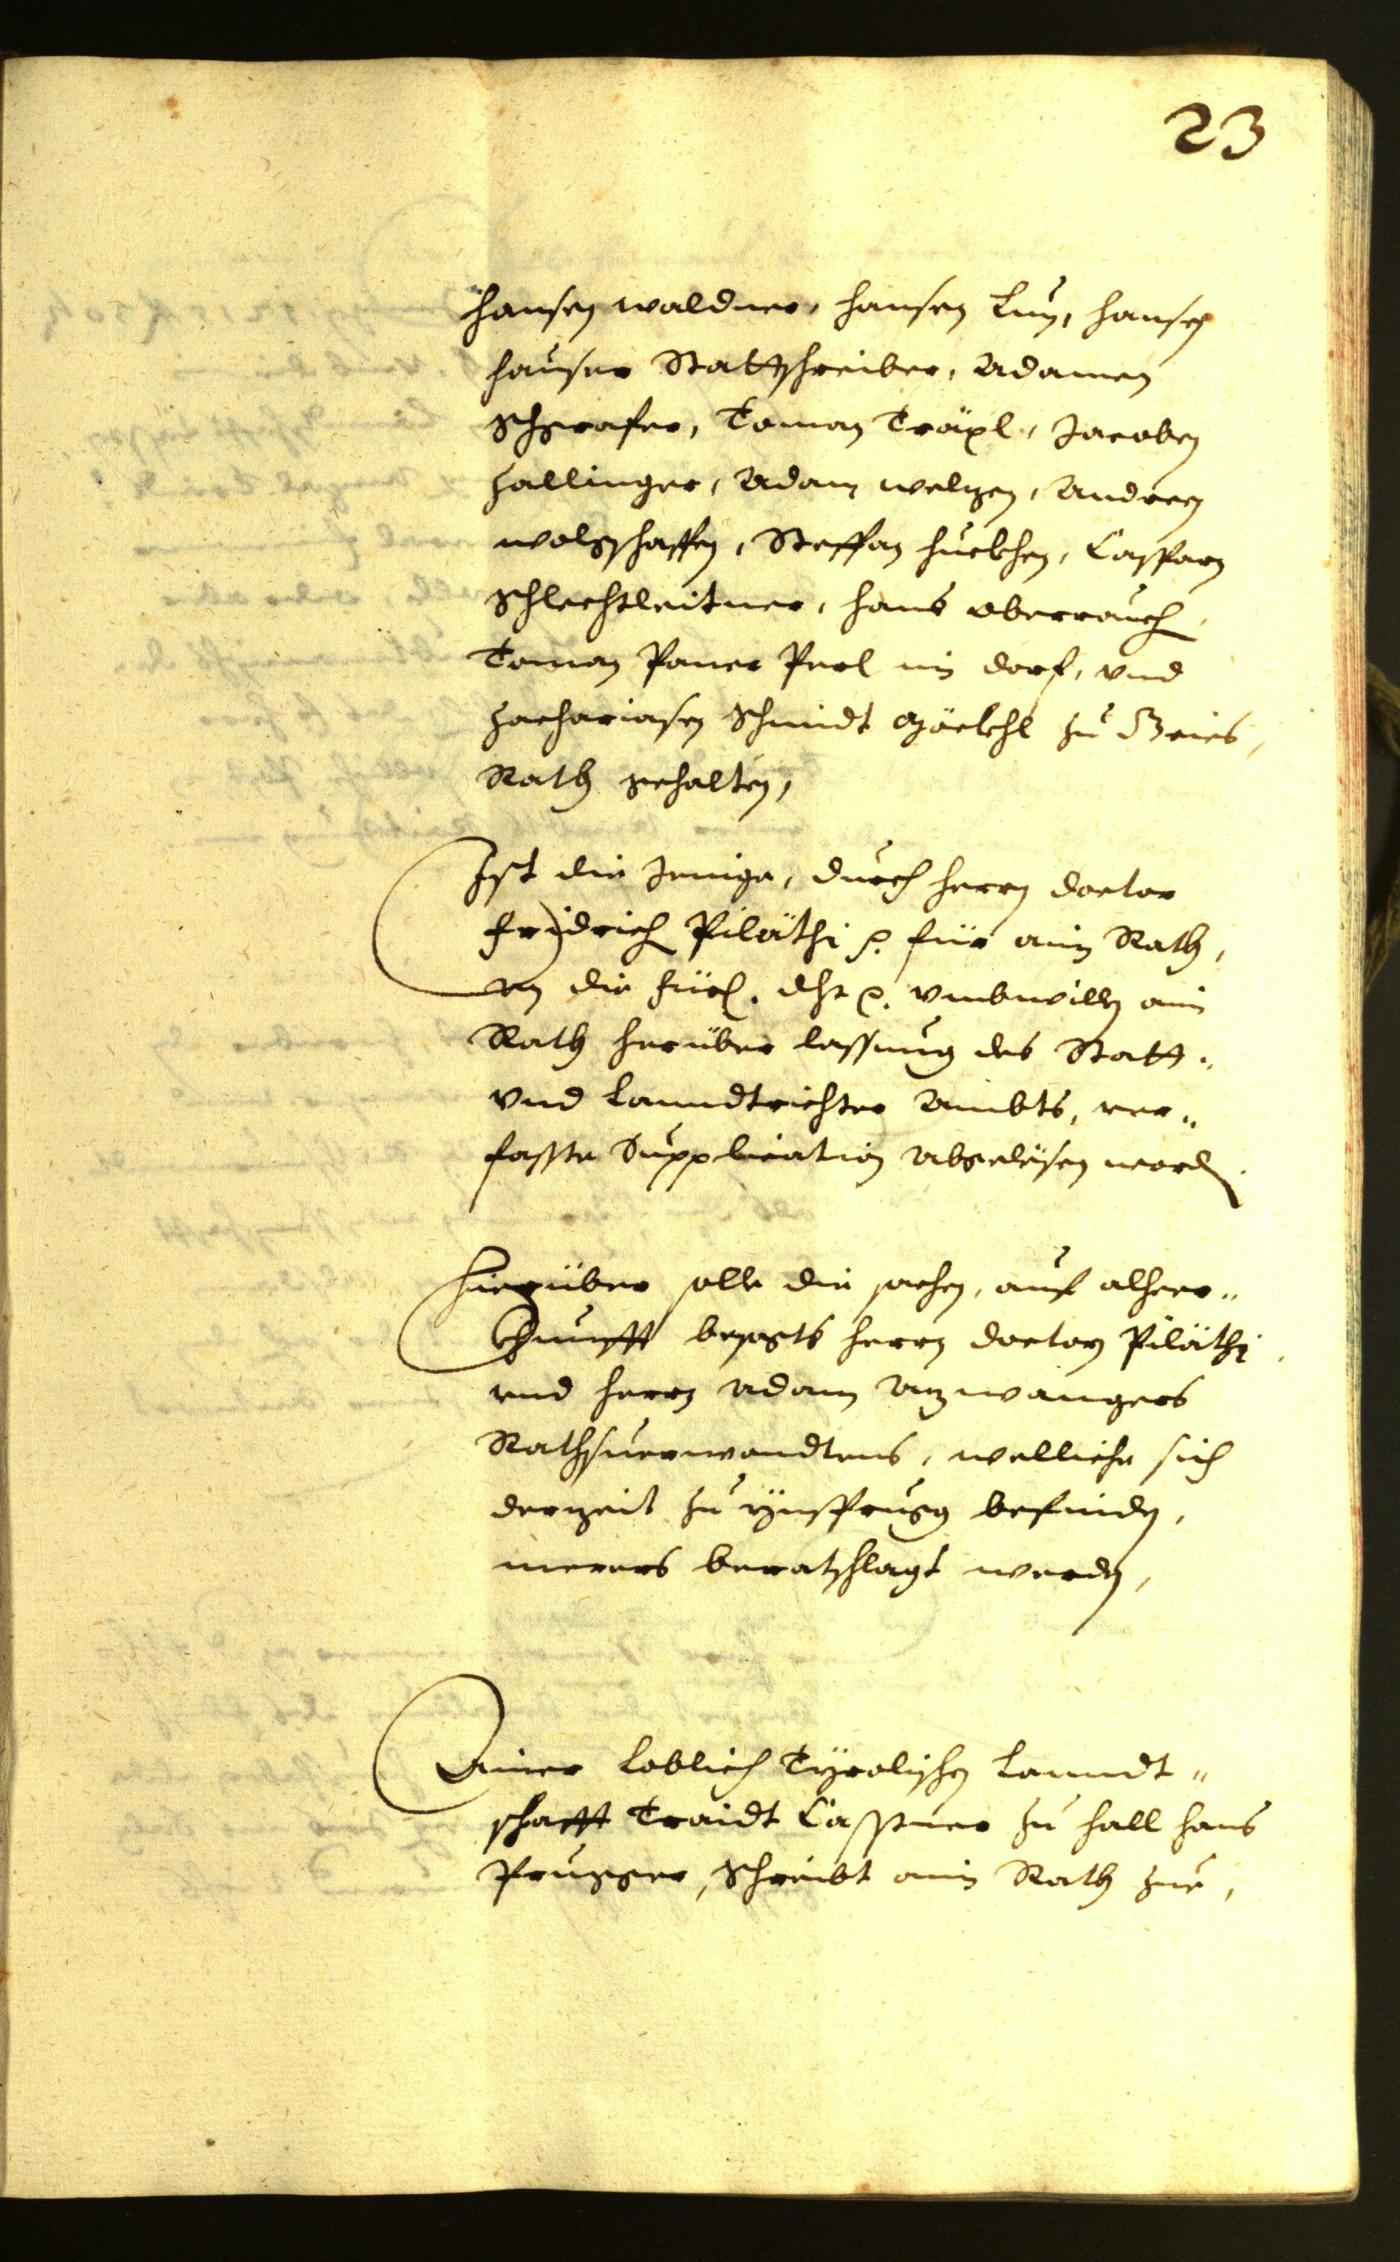 23
Hansen Waldner, Hansen Lun, Hansen
Hauser Stattschreiber, Adamen
Schgrafer, Toman Träxl, Jacoben
Hallinger, Adam Welzen, Andreen
Wolgschaffen, Steffan Huebhen, Casparn
Schlechtleitner, Hans Oberrauch,
Toman Paner Perl im dorf, vnd
Zachariasen Schmidt Gäelchl zu Gries,
Rath gehalten,
Ist die Jenige, durch herrn doctor
Fridrich Piläthi p. für ain Rath,
an die Fürl. dht p. vmbwillen ain
Rath herüber lassung des Statt-
vnd Lanndtrichter Ambts, ver„
faste Supplication abgelesen word.
Hierüber solle die sachen, auf alheer„
Chunfft besagts herrn doctorn Piläthi
vnd herrn Adam Anzwangers
Rathsuerwandtens, welliche sich
derzeit zu ynsprugg befinden,
merers beratschlagt werden,
Ainer Loblich Tyrolischen Lanndt„
schafft Traidt Casstner zu Hall Hans
Prugger, schreibt ain Rath zue,